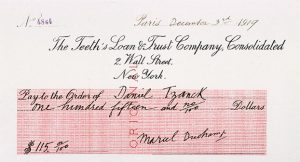 No 6864 Paris December 3rd 1919
The Teeth's Loan & Trust Company, Consolidated
2 Wall Street.
New York.
Pay to the Order of Daniel Tzanck
one hundred fifteen and no/100 Dollars
ORIGINAL
$ 115. no/100 Marcel Duchamp